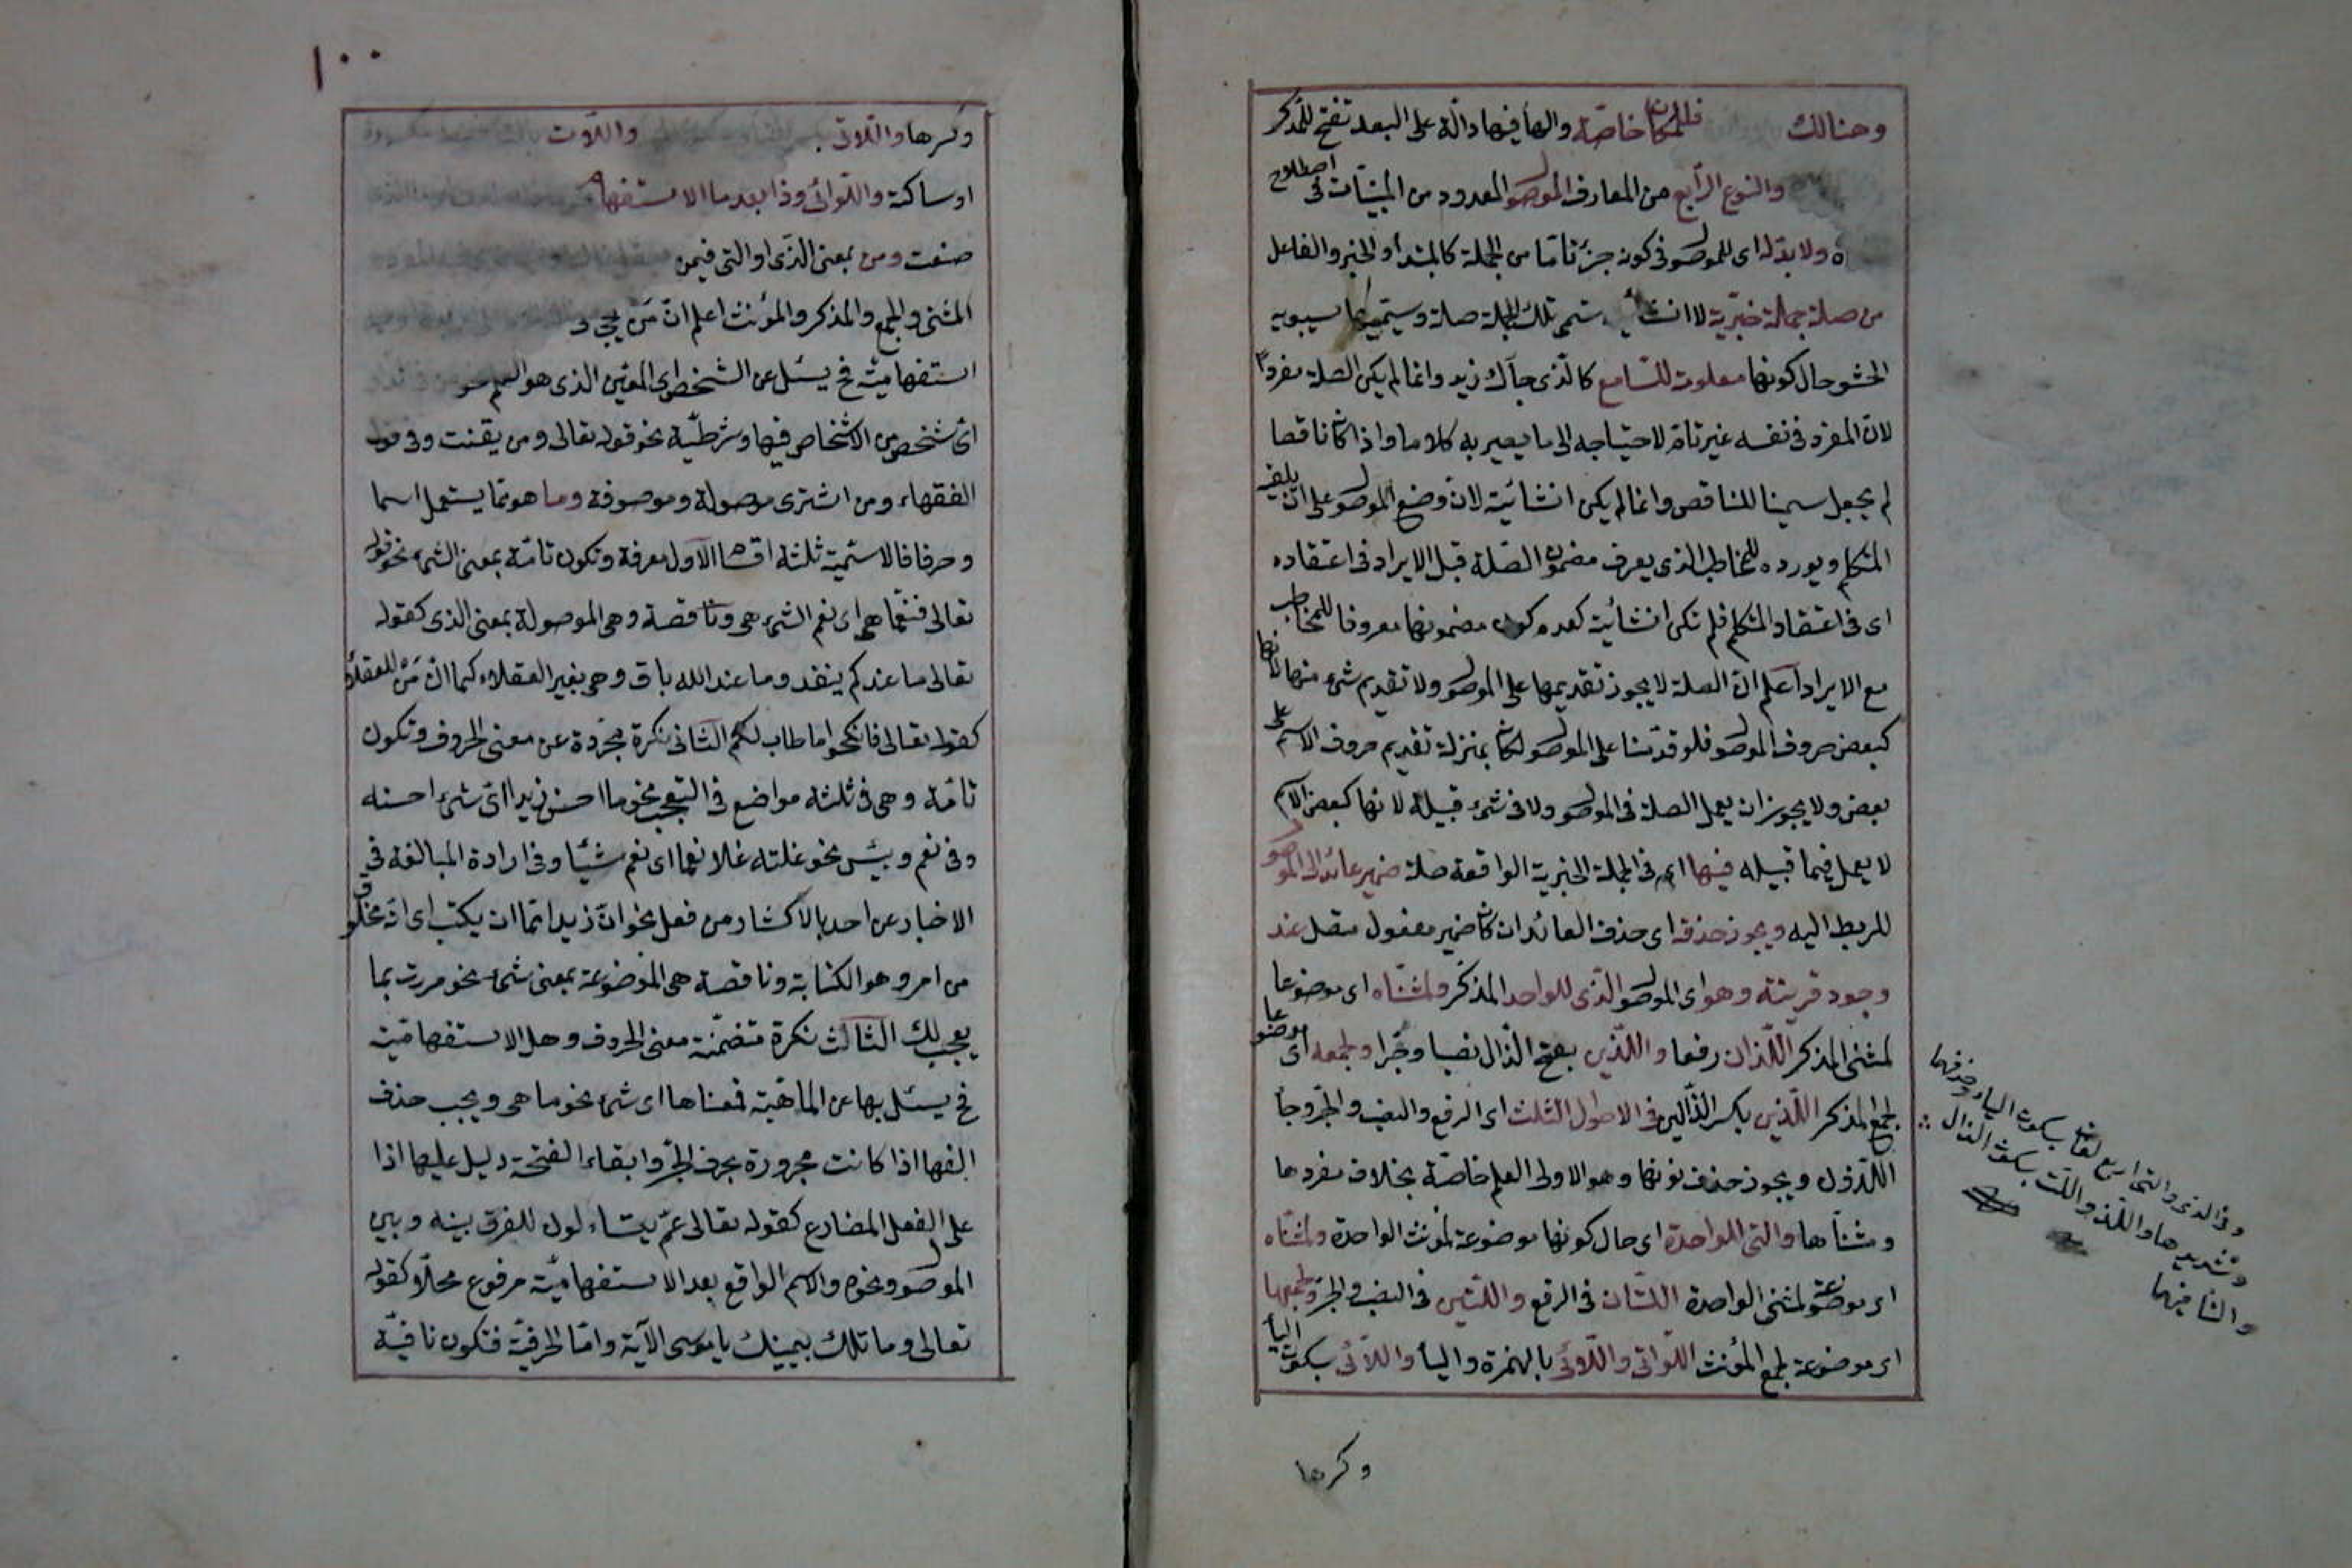 وهنالك فللمكان خاصّة والهأ فيها دالّة على البعد تفتح للمذكر
والنوع الرّابع من المعارف الموصول المعدود من المبنيّات فى اصطلاح
ولا بدّ له اى للموصول فى كونه جزئا تامّا من الجملة كالمبتدأ والخبر والفاعل
من صلة جملة خبريّة لا انشائية تسمى تلك الجملة صلة وسيتميها سيبويه
الحشو حال كونها معلومة للسّامع كالذى جآءك زيد وانما لم يكن الصلة مفردًا
لان المفرد فى نفسه غير تامّ لاحتياجه الى ما يصير به كلاما واذا كان ناقصا
لم يجعل سببا للناقص وانما لم يكن انشائيّة لان وضع الموصول على ان يلقيه
المتكلم ويورده للمخاطب الذى يعرف مضمون الصّلة قبل الايراد فى اعتقاده
اى فى اعتقاد المتكلم فلم تكن انشائية لعدم كون مضمونها معروفا للمخاطب
مع الايراد اعلم انّ الصلة لا يجوز تقديمها على الموصول ولا تقديم شئ منها لانها
كبعض حروف الموصول فلو قدّمنا على الموصول لكان بمنزلة تقديم حروف الاسم على
بعض ولا يجوز ان يعمل الصلة فى الموصول ولا فى شئ قبله لانها كبعض الاسم
لا يعمل فيما قبله فيها اى فى الجملة الخبرية الواقعة صلة ضمير عائد الى الموصول
للربط اليه ويجوز حذفه اى حذف العائد ان كان ضمير مفعول متصل عند
وجود قرينة وهو اى الموصول الّذى للواحد المذكر ولمثنّاه اى موضوعا
لمثنى المذكر اللّذان رفعا واللّذين بفتح الذّال نصبا وجّرا ولجمعه اى موضوعا
لجمع المذكر الّذين بكسر الذّال فى الاحوال الثلث اى الرفع والنصب والجرّ وجأ
اللّذون ويجوز حذف نونها وهو الاولى العلم خاصّة بخلاف مفردها
ومثنّاها والتى للواحدة اى حال كونها موضوعة لمؤنث الواحدة ولمثنّاه
اى موضوعة لمثنى الواحدة اللتان فى الرفع واللتين فى النصب والجرّ ولجمعها
اى موضوعة لجمع المؤنث اللّواتى واللّائى بالهمزة واليأ واللّائى بسكون اليأ
وكسرها
وفى الذى والتى اربع لغات سكون اليا وحذفها
وتشديدها واللّذ واللّت بسكون الذال
والتا فيهما
١٠٠
وكسرها واللّاتى واللّات
او ساكنة واللّوائى وذا بعد ما الاستفهام
صنعت ومن بمعنى الّذى او التى فيمن
المثنى والجمع والمذكر والمؤنث اعلم انّ مَن يجئ
استفهاميّة فح يسئل عن الشخص اى المعين الذى هو العلم
اىّ شخص من الاشخاص فيها وشرطيّة نحو قوله تعالى ومن يقنت وفى قول
الفقهاء ومن اشترى موصولة وموصوفة وما هو ممّا يستعمل اسما
وحرفا فالاسميّة ثلثة اقسام الاول معرفة وتكون تامّة بمعنى الشئ نحو قوله
تعالى فنعمّا هى اى نعم الشئ هى وناقصة وهى الموصولة بمعنى الذى كقوله
تعالى ما عندكم ينفد وما عند الله باق وهى بغير العقلاء كما انّ مَنْ للعقلاء
كقوله تعالى فانكحوا ما طاب لكم الثانى نكرة مجرّدة عن معنى الحروف وتكون
تامّة وهى فى ثلثة مواضع فى التعجب نحو ما احسن زيدا اىّ شئ احسنه
وفى نعم وبئس نحو غسلته غسلا نعما اى نعم شيئا وفى ارادة المبالغة فى
الاخبار عن احد بالاكثار من فعل نحو انّ زيدا ممّا ان يكتب اى انّه مخلوق
من امر وهو الكتابة وناقصة هى الموضوعة بمعنى شئ نحو مررت بما
يعجب لك الثالث نكرة متضمّنة معنى الحروف وهل الاستفهاميّة
فح يسئل بها عن الماهيّة فمعناها اى شئ نحو ما هى ويجب حذف
الفها اذا كانت مجرورة بحرف الجرّ وابقاء الفتحة دليل عليها اذا
على الفعل المضارع كقوله تعالى عمّ يتساءلون للفرق بينه وبين
الموصول ونحوه والاسم الواقع بعد الاستفهاميّة مرفوع محلّا كقوله
تعالى وما تلك بيمينك يا موسى الآية وامّا الحرفيّة فتكون نافيّة